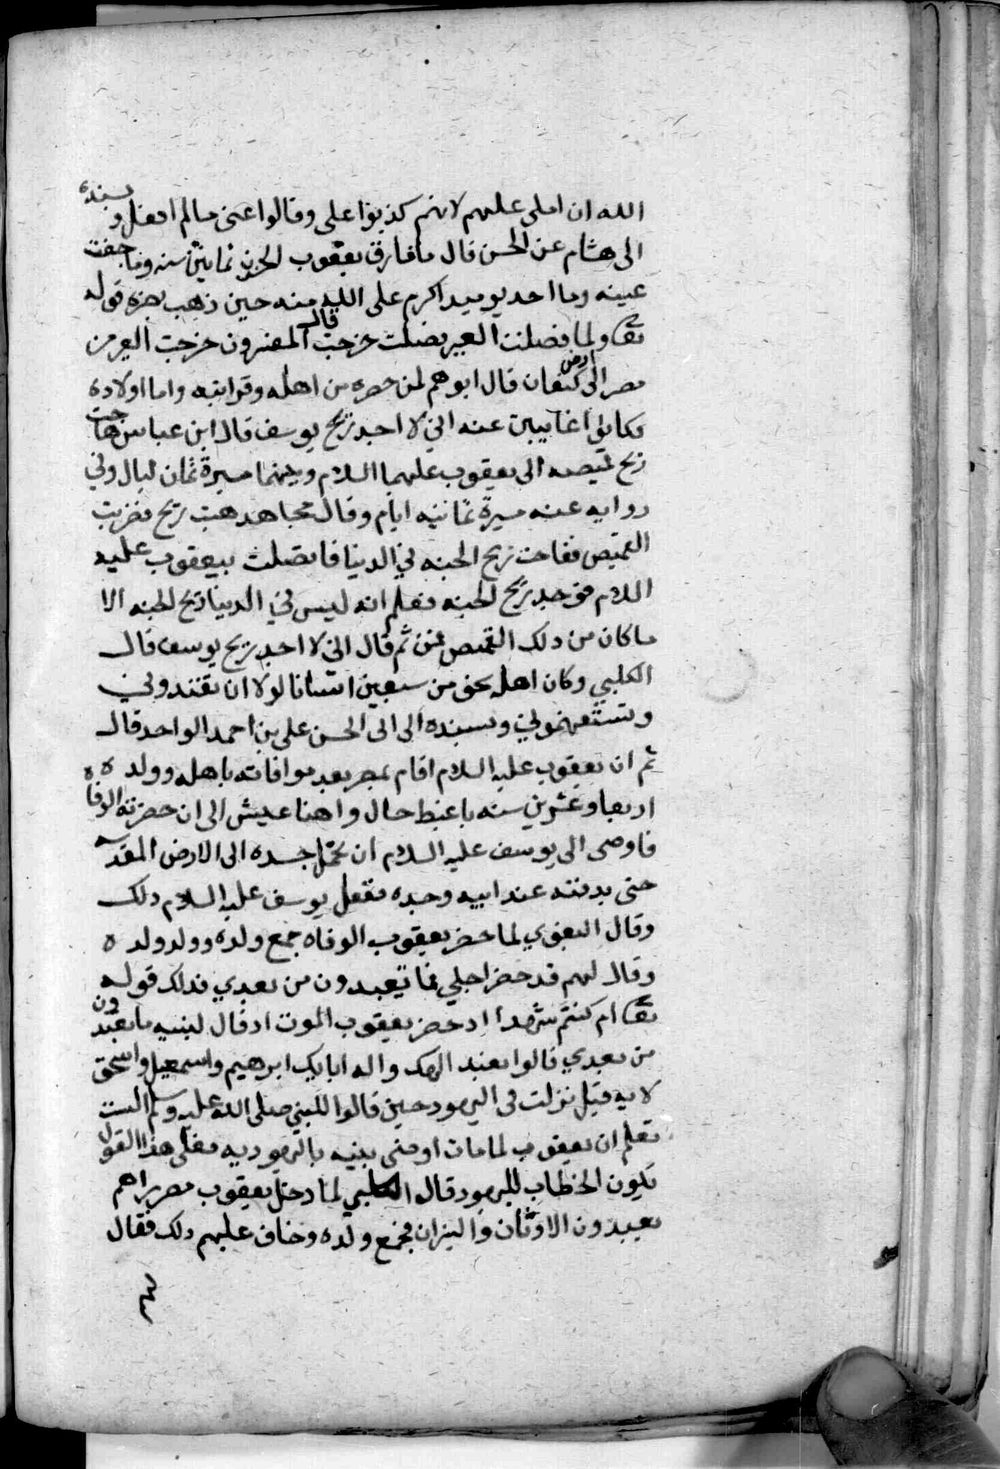 الله ان املى عليهم لانهم كذبوا على وقالوا عنى مالم افعل وبسنده
الى هشام عن الحسن قال ما فارق يعقوب الحزن ثمانين سنه وما جفت
عينه وما احد يوميد اكرم على الله منه حين ذهب بصره قوله
تعا ولما فصلت العير فصلت خرجت قال المفسرون خرجت العير من
مصر الى ارض كنعان قال ابوهم لمن حضره من اهله وقرابته واما اولاده
فكانوا غايبين عنه اني لاجد ريح يوسف قال ابن عباس هاجت
ريح قميصه الى يعقوب عليهما السلام وبينهما مسيرة ثمان ليال وفي
روايه عنه مسيرة ثمانيه ايام وقال مجاهد هبت ريح فضربت
القميص ففاحت ريح الجنه في الدنيا فاتصلت بيعقوب عليه
السلام فوجد ريح الجنه فعلم انه ليس في الدنيا ريح الجنه الا
ما كان من ذلك القميص فمن ثم قال اني لاجد ريح يوسف قال
الكلبي وكان اهله نحو من سبعين انسانا لولا ان تفندوني
وتسفهوني وبسنده الى ابى الحسن على بن احمد الواحد قال
ثم ان يعقوب عليه السلام اقام بمصر بعد موافاته باهله وولده
اربعا وعشرين سنه باغبط حال واهنا عيش الى ان حضرته الوفاه
فاوصى الى يوسف عليه السلام ان يحمل جسده الى الارض المقدسه
حتى يدفنه عند ابيه وجده ففعل يوسف عليه السلام ذلك
وقال البغوي لما حضر يعقوب الوفاه جمع ولده وولد ولده
وقال لهم قد حضر اجلي فما تعبدون من بعدي فذلك قوله
تعا ام كنتم شهدا اد حضر يعقوب الموت اد قال لبنيه ما تعبدون
من بعدي قالوا نعبد الهك واله ابايك ابرهيم واسمعيل واسحق
لايه قيل نزلت فى اليهود حين قالوا للنبي صلى الله عليه وسلم الست
تعلم ان يعقوب لما مات اوصى بنيه باليهوديه فعلى هذا القول
يكون الخطاب لليهود قال الكلبي لما دخل يعقوب مصر راهم
يعبدون الاوثان والنيران فجمع ولده وخاف عليهم ذلك فقال
لهم